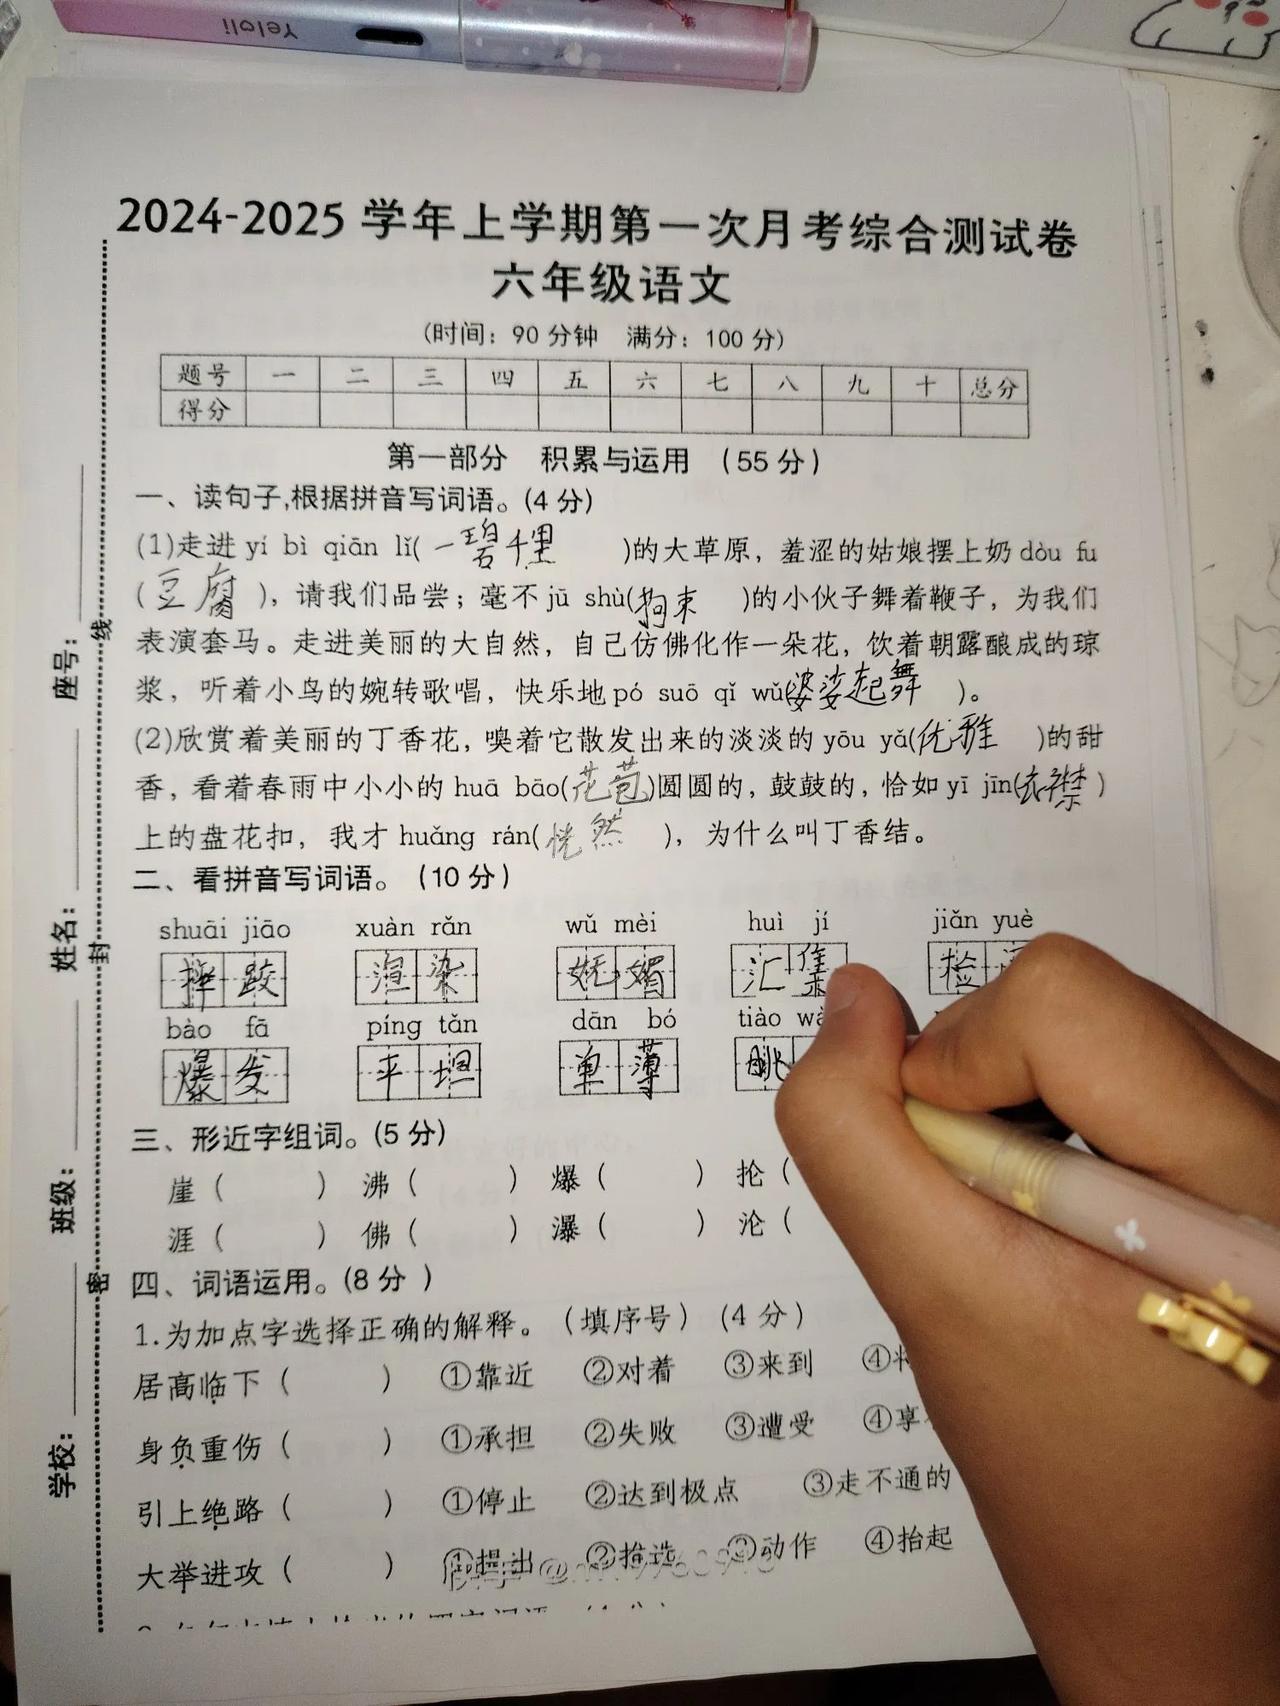 Yeloli
2024-2025 学年上学期第一次月考综合测试卷
六年级语文
(时间：90 分钟 满分：100 分)
题号 一 二 三 四 五 六 七 八 九 十 总分
得分
第一部分 积累与运用 (55 分)
一、读句子,根据拼音写词语。(4 分)
(1)走进 yí bì qiān lǐ(一碧千里)的大草原，羞涩的姑娘摆上奶 dòu fu
(豆腐)，请我们品尝；毫不 jū shù(拘束)的小伙子舞着鞭子，为我们
表演套马。走进美丽的大自然，自己仿佛化作一朵花，饮着朝露酿成的琼
浆，听着小鸟的婉转歌唱，快乐地 pó suō qǐ wǔ(婆娑起舞)。
(2)欣赏着美丽的丁香花，嗅着它散发出来的淡淡的 yōu yǎ(优雅)的甜
香，看着春雨中小小的 huā bāo(花苞)圆圆的，鼓鼓的，恰如 yī jīn(衣襟)
上的盘花扣，我才 huǎng rán(恍然)，为什么叫丁香结。
二、看拼音写词语。(10 分)
shuāi jiāo xuàn rǎn wǔ mèi huì jí jiǎn yuè
摔跤 渲染 妩媚 汇集 检
bào fā píng tǎn dān bó tiào
爆发 平坦 单薄 眺
三、形近字组词。(5 分)
崖( ) 沸( ) 爆( ) 抡(
涯( ) 佛( ) 瀑( ) 沦(
四、词语运用。(8 分)
1.为加点字选择正确的解释。(填序号) (4 分)
居高临下( ) ①靠近 ②对着 ③来到 ④
身负重伤( ) ①承担 ②失败 ③遭受 ④享
引上绝路( ) ①停止 ②达到极点 ③走不通的
大举进攻( ) ①提出 ②推选 ③动作 ④抬起
学校： 班级： 姓名： 座号：
密 封 线